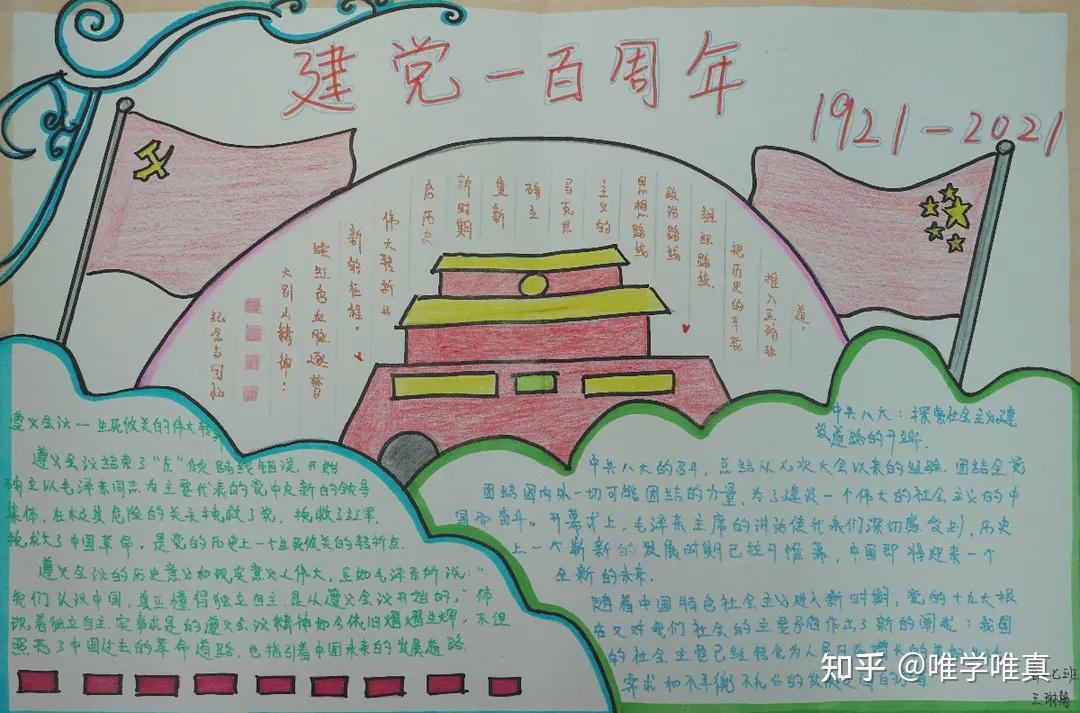 建党一百周年
1921-2021
启历史
新时期
重新
确立
马克思
主义的
思想路线
政治路线
组织路线.
把历史的车轮
推入正确轨
道.
伟大转折点
新的征程。
续红色血脉
大别山精神！
遵义会议一生死攸关的伟大转
遵义会议结束了"左"倾路线错误,开始
确立以毛泽东同志为主要代表的党中央新的领导
集体,在极其危险的关头挽救了党,挽救了红军,
挽救了中国革命,是党的历史上一个生死攸关的转折点.
遵义会议的历史意义和现实意义伟大,正如毛泽东所说:"
我们认识中国,真正懂得独立自主,是从遵义会议开始的,"体
现着独立自主 实事求是的遵义会议精神如今依旧熠熠生辉,不但
照亮了中国过去的革命道路,也指引着中国未来的发展道路.
中共八大:探索社会主义建
设道路的开端.
中共八大的召开,总结从七次大会以来的经验,团结全党
团结国内外一切可能团结的力量,为了建设一个伟大的社会主义的中
国而奋斗。开幕式上,毛泽东主席的讲话使代表们深切感受到,历史
上一个崭新的发展时期已拉开帷幕,中国即将迎来一个
全新的未来.
随着中国特色社会主义进入新时期,党的十九大报
告又对我们社会的主要矛盾作出了新的阐述:我国
的社会主要已经转化为人民日益增长的美好
需求和不平衡不充分的发展之间的矛盾
七班
王琳
知乎 @唯学唯真